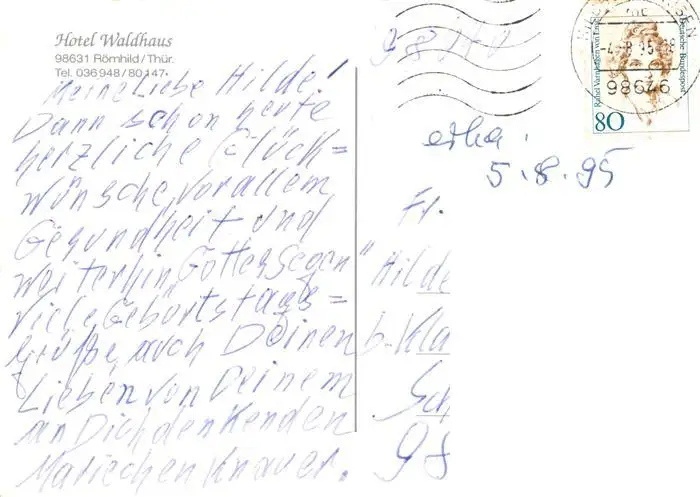 Hotel Waldhaus
98631 Römhild / Thür.
Tel. 036948/80147
Meine Liebe Hilde!
Dann schon heute
herzliche Glück=
wünsche, vor allem
Gesundheit und
weiterhin "Gottes Segen"
viele Geburtstags=
grüße, auch Deinen
Lieben von Deinem
an Dich denkenden
Mariechen Knauer.
98646
Rahel Varnhagen von Ense
Deutsche Bundespost
80
5.8.95
Fr.
Hilde
b. Kla
Sch
98